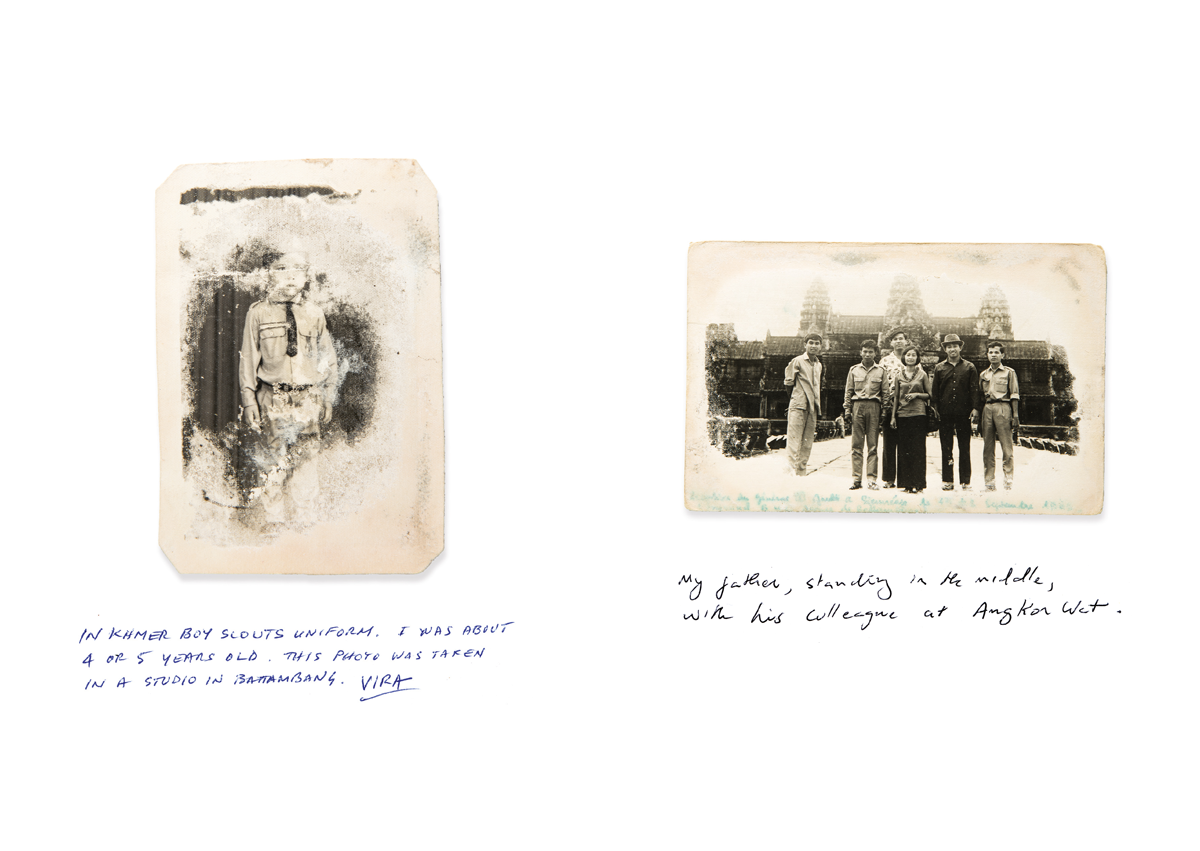 IN KHMER BOY SCOUTS UNIFORM. I WAS ABOUT
4 OR 5 YEARS OLD. THIS PHOTO WAS TAKEN
IN A STUDIO IN BATTAMBANG. VIRA
général
à
le
Septembre
My father, standing in the middle,
with his colleague at Angkor Wat.